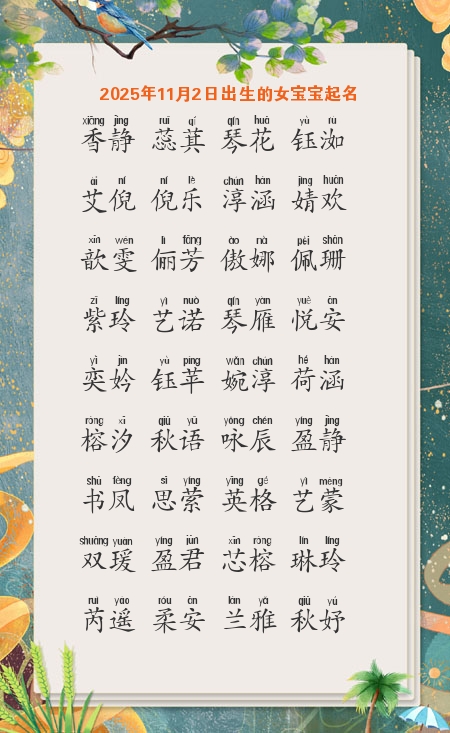 2025年11月2日出生的女宝宝起名
xiāng jìng ruǐ qí qín huā yù rú
香静 蕊萁 琴花 钰洳
ài ní ní lè chún hán jìng huān
艾倪 倪乐 淳涵 婧欢
xīn wén lì fāng ào nà pèi shān
歆雯 俪芳 傲娜 佩珊
zǐ líng yì nuò qín yàn yuè ān
紫玲 艺诺 琴雁 悦安
yì jīn yù píng wǎn chún hé hán
奕妗 钰苹 婉淳 荷涵
róng xī qiū yǔ yǒng chén yíng jìng
榕汐 秋语 咏辰 盈静
shū fèng sī yíng yīng gé yì méng
书凤 思萦 英格 艺蒙
shuāng yuàn yíng jūn xīn róng lín líng
双瑗 盈君 芯榕 琳玲
ruì yáo róu ān lán yǎ qiū yú
芮遥 柔安 兰雅 秋妤